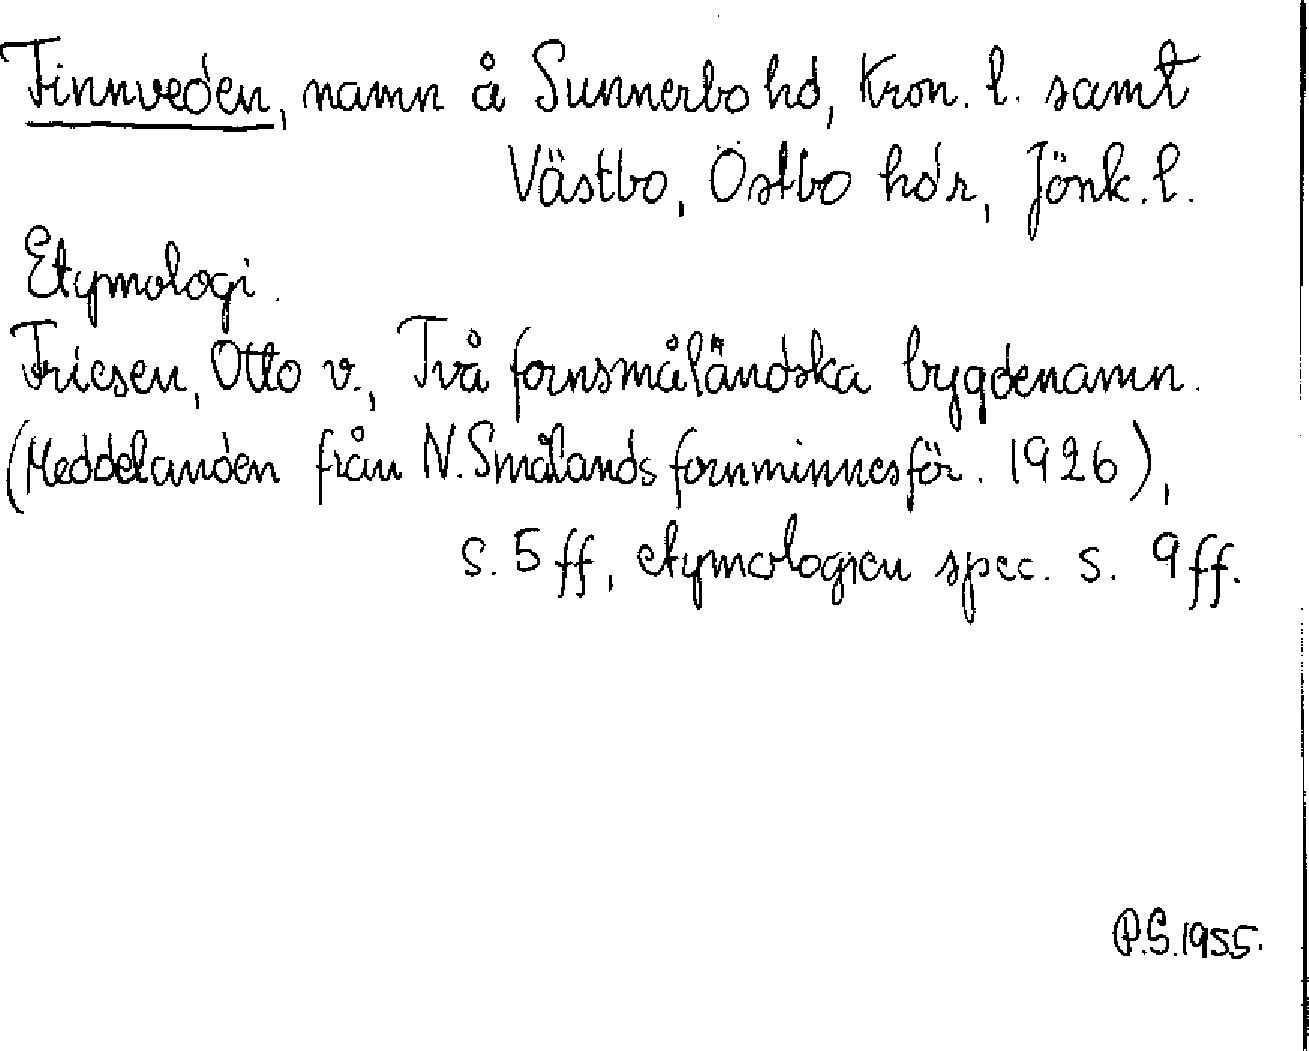 Finnveden, namn å Sunnerbo hd, Kron. l. samt
Västbo, Östbo hdr, Jönk. l.
Etymologi.
Friesen, Otto v., Två fornsmåländska bygdenamn.
(Meddelanden från N. Smålands fornminnesför. 1926),
s. 5 ff, etymologien spec. s. 9 ff.
P.S. 1955.